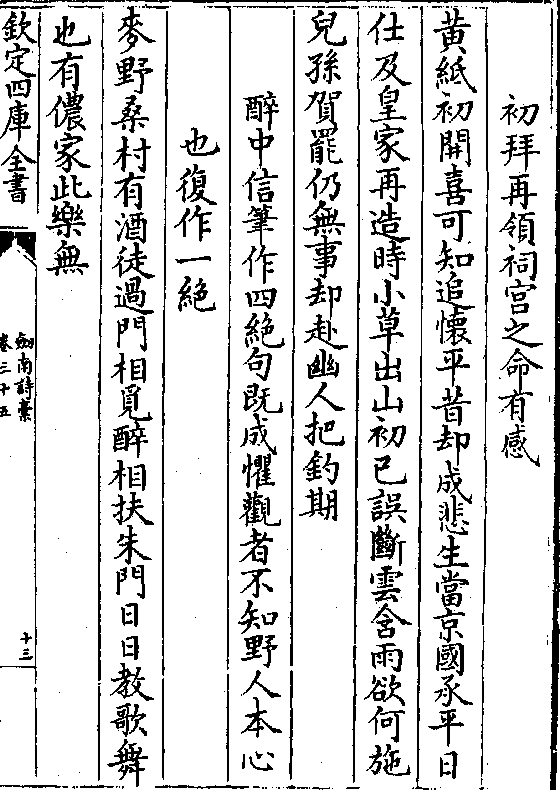 初拜再領祠宫之命有感
黄紙初開喜可知追懷平昔却成悲生當京國承平日
仕及皇家再造時小草出山初已誤斷雲含雨欲何施
兒孫賀罷仍無事却赴幽人把釣期
醉中信筆作四絶句既成懼觀者不知野人本心
也復作一絶
麥野桑村有酒徒過門相覓醉相扶朱門日日教歌舞
也有儂家此樂無
欽定四庫全書
劔南詩稾
卷三十五
十三